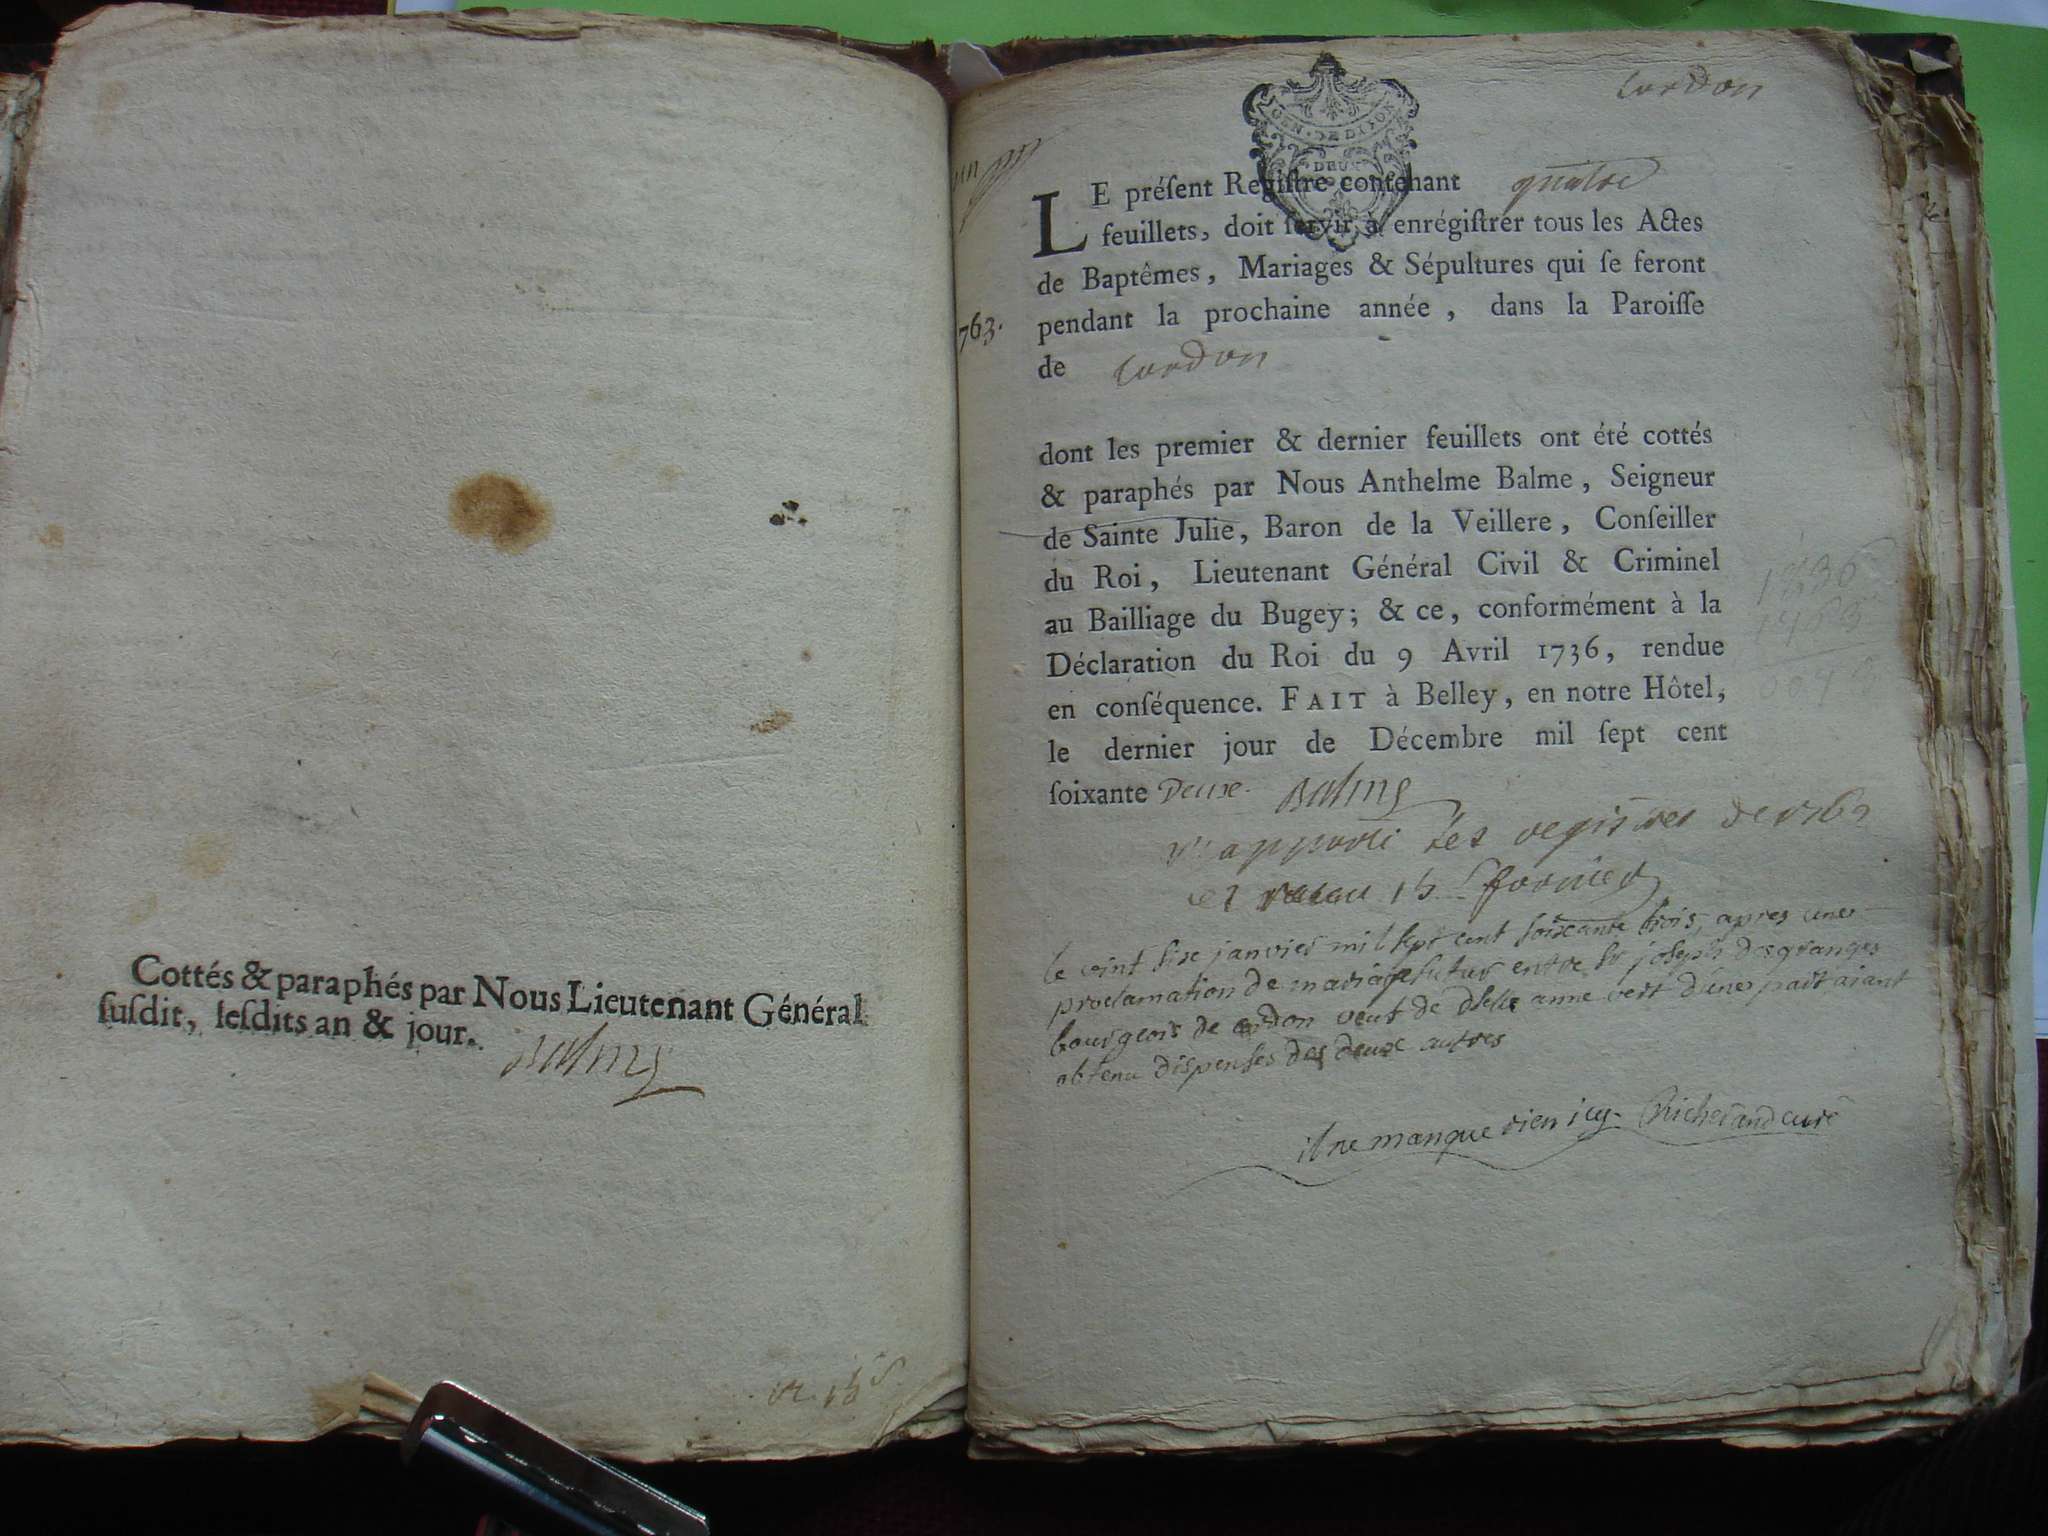 Cottés & paraphés par Nous Lieutenant Général
ſuſdit, leſdits an & jour.
Balme
Cordon
GEN · DE DIJON
DEUX
un
LE préſent Regiſtre contenant quatre
feuillets, doit ſervir à enrégiſtrer tous les Actes
de Baptêmes, Mariages & Sépultures qui ſe feront
pendant la prochaine année, dans la Paroiſſe
763.
de Cordon
dont les premier & dernier feuillets ont été cottés
& paraphés par Nous Anthelme Balme, Seigneur
de Sainte Julie, Baron de la Veillere, Conſeiller
du Roi, Lieutenant Général Civil & Criminel
au Bailliage du Bugey; & ce, conformément à la
Déclaration du Roi du 9 Avril 1736, rendue
en conſéquence. FAIT à Belley, en notre Hôtel,
le dernier jour de Décembre mil ſept cent
ſoixante Deux. Balme
apporté les registres de 1762
et 15
le vint six janvier mil sept cent soixante trois, apres une
proclamation de mariage futur entre Sr joseph desgranges
bourgeois de cordon veuf de Dlle anne vert d'une part aiant
obtenu dispenses des deux autres
il ne manque rien icy. Richerand curé